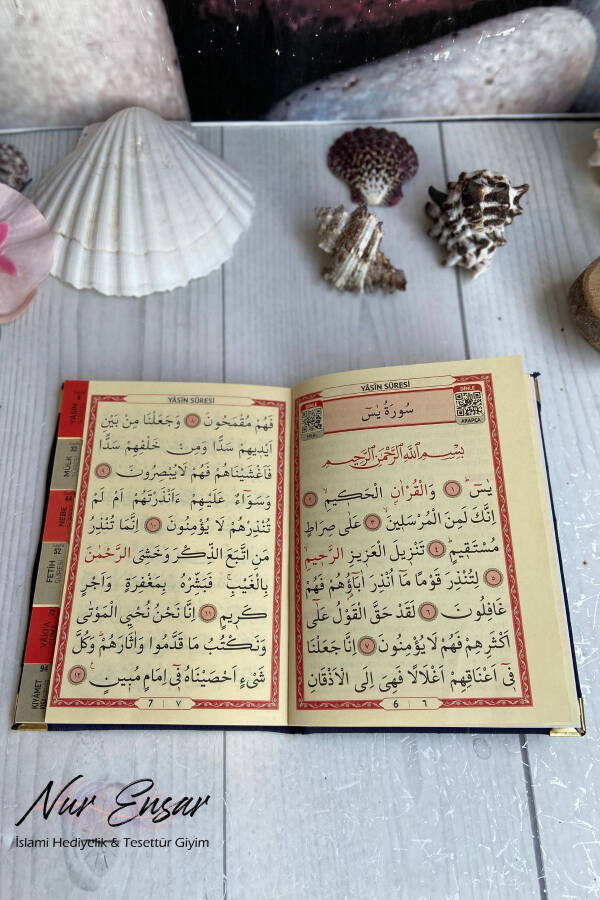 YÂSÎN SÛRESİ
DİNLE
DİNLE
ARAPÇA
سُورَةُ يٰسٓ
بِسْمِ اللّٰهِ الرَّحْمٰنِ الرَّحٖيمِ
يٰسٓ ۚ ﴿١﴾ وَالْقُرْاٰنِ الْحَكٖيمِ ۙ ﴿٢﴾
اِنَّكَ لَمِنَ الْمُرْسَلٖينَ ۙ ﴿٣﴾ عَلٰى صِرَاطٍ
مُسْتَقٖيمٍ ۜ ﴿٤﴾ تَنْزٖيلَ الْعَزٖيزِ الرَّحٖيمِ ۙ
﴿٥﴾ لِتُنْذِرَ قَوْمًا مَٓا اُنْذِرَ اٰبَٓاؤُ۬هُمْ فَهُمْ
غَافِلُونَ ﴿٦﴾ لَقَدْ حَقَّ الْقَوْلُ عَلٰٓى
اَكْثَرِهِمْ فَهُمْ لَا يُؤْمِنُونَ ﴿٧﴾ اِنَّا جَعَلْنَا
فٖٓي اَعْنَاقِهِمْ اَغْلَالًا فَهِيَ اِلَى الْاَذْقَانِ
6 | ٦
YÂSÎN SÛRESİ
فَهُمْ مُقْمَحُونَ ﴿٨﴾ وَجَعَلْنَا مِنْ بَيْنِ
اَيْدٖيهِمْ سَدًّا وَمِنْ خَلْفِهِمْ سَدًّا
فَاَغْشَيْنَاهُمْ فَهُمْ لَا يُبْصِرُونَ ﴿٩﴾
وَسَوَٓاءٌ عَلَيْهِمْ ءَاَنْذَرْتَهُمْ اَمْ لَمْ
تُنْذِرْهُمْ لَا يُؤْمِنُونَ ﴿١٠﴾ اِنَّمَا تُنْذِرُ
مَنِ اتَّبَعَ الذِّكْرَ وَخَشِيَ الرَّحْمٰنَ
بِالْغَيْبِ ۚ فَبَشِّرْهُ بِمَغْفِرَةٍ وَاَجْرٍ
كَرٖيمٍ ﴿١١﴾ اِنَّا نَحْنُ نُحْيِ الْمَوْتٰى
وَنَكْتُبُ مَا قَدَّمُوا وَاٰثَارَهُمْ ۜ وَكُلَّ
شَيْءٍ اَحْصَيْنَاهُ فٖٓي اِمَامٍ مُبٖينٍ ۟ ﴿١٢﴾
7 | ٧
YÂSÎN
MÜLK
NEBE
FETİH 52
SÛRESİ
VÂKIA
KIYÂMET 94
Nur Ensar
İslami Hediyelik & Tesettür Giyim